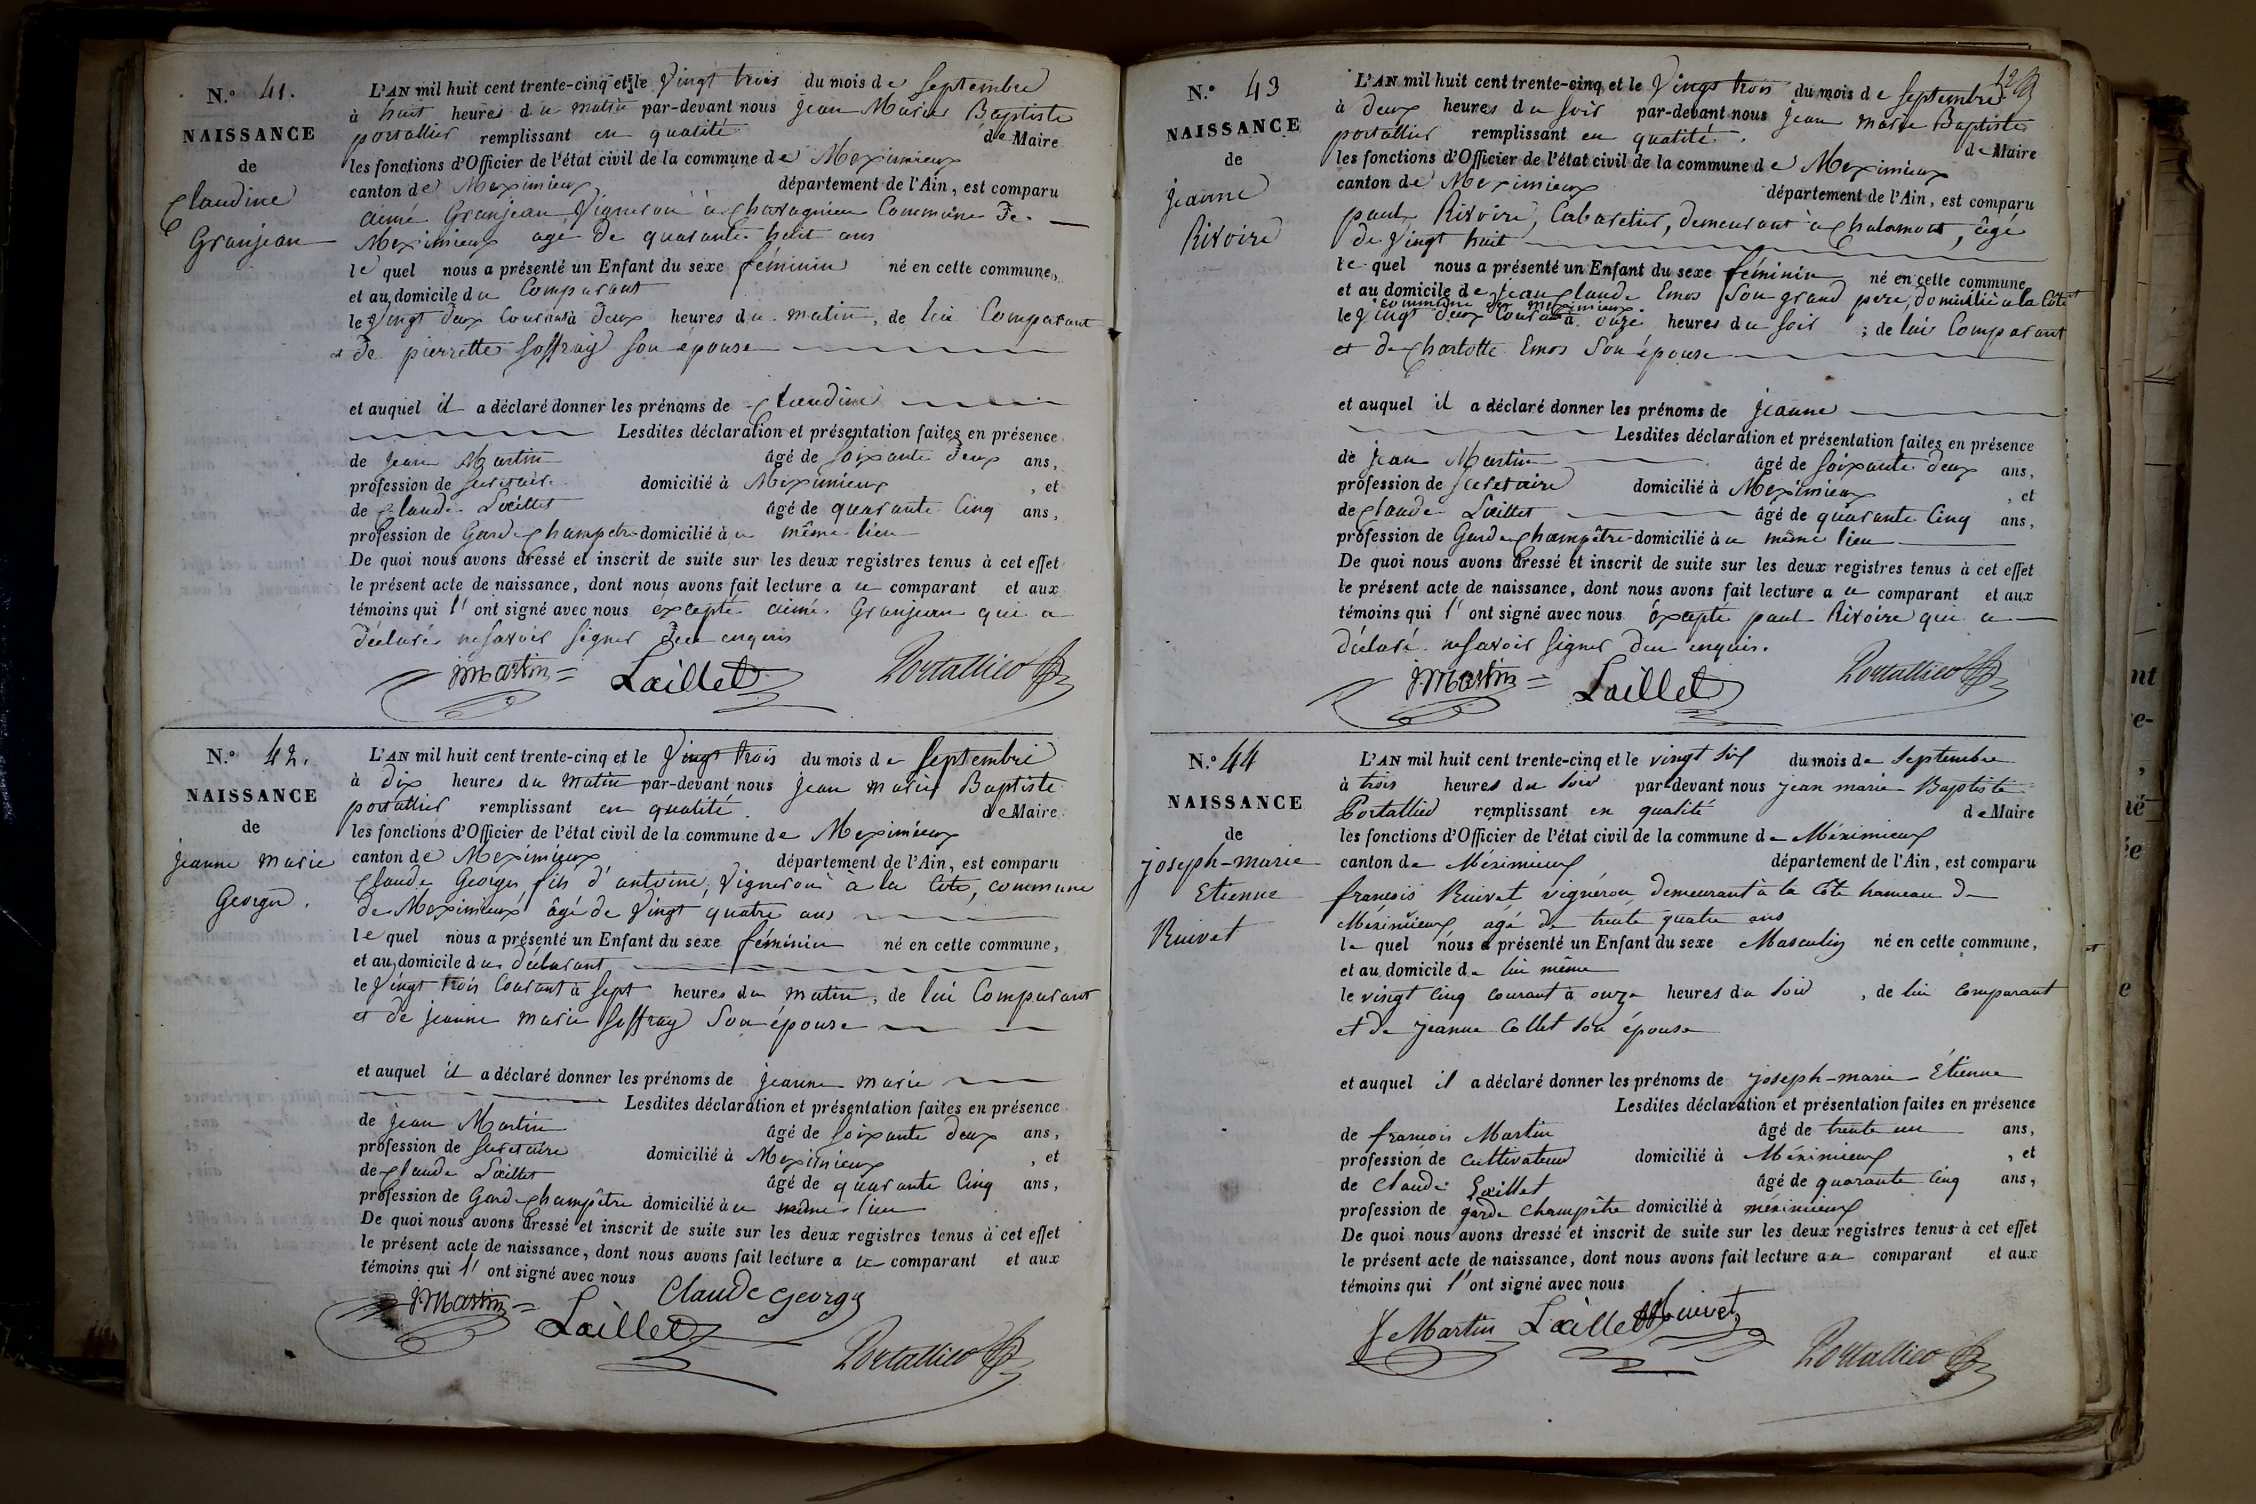 N.° 41.
NAISSANCE
de
Claudine
Granjean
L'AN mil huit cent trente-cinq et le Vingt trois du mois de Septembre
à huit heures du matin par-devant nous Jean Marie Baptiste
portallier remplissant en qualité de Maire
les fonctions d'Officier de l'état civil de la commune de Meximieux
canton de Meximieux département de l'Ain, est comparu
aimé Granjean Vigneron à Chavagnieu Commune De
Meximieux agé de quarante huit ans
le quel nous a présenté un Enfant du sexe féminin né en cette commune,
et au domicile du Comparant
le Vingt deux Courant à deux heures du matin, de lui Comparant
et de pierrette Soffray son épouse
et auquel il a déclaré donner les prénoms de Claudine
Lesdites déclaration et présentation faites en présence
de Jean Martin âgé de soixante deux ans,
profession de secretaire domicilié à Meximieux, et
de Claude Laillet âgé de quarante Cinq ans,
profession de Garde Champetre domicilié à u même lieu
De quoi nous avons dressé et inscrit de suite sur les deux registres tenus à cet effet
le présent acte de naissance, dont nous avons fait lecture a u comparant et aux
témoins qui l' ont signé avec nous excepté aimé Granjean qui a
déclaré ne savoir signer de ce enquis
JMartin Laillet Portallier
N.° 42.
NAISSANCE
de
jeanne marie
Georges.
L'AN mil huit cent trente-cinq et le Vingt trois du mois de Septembre
à Dix heures du Matin par-devant nous Jean Marie Baptiste
portallier remplissant en qualité. de Maire
les fonctions d'Officier de l'état civil de la commune de Meximieux
canton de Meximieux département de l'Ain, est comparu
Claude Georges, fils d'antoine, Vigneron à la Cote, commune
de Meximieux âgé de Vingt quatre ans
le quel nous a présenté un Enfant du sexe féminin né en cette commune,
et au domicile du déclarant
le Vingt trois Courant à sept heures du matin, de lui Comparant
et de jeanne marie Soffray Son épouse
et auquel il a déclaré donner les prénoms de jeanne marie
Lesdites déclaration et présentation faites en présence
de Jean Martin âgé de soixante deux ans,
profession de secretaire domicilié à Meximieux, et
de Claude Laillet âgé de quarante Cinq ans,
profession de Garde Champêtre domicilié à u même lieu
De quoi nous avons dressé et inscrit de suite sur les deux registres tenus à cet effet
le présent acte de naissance, dont nous avons fait lecture a u comparant et aux
témoins qui l' ont signé avec nous
JMartin Laillet Claude Georges
Portallier
N.° 43
NAISSANCE
de
Jeanne
Rivoire
L'AN mil huit cent trente-cinq et le Vingt trois du mois de Septembre
à deux heures du soir par-devant nous Jean Marie Baptiste
portallier remplissant en qualité. de Maire
les fonctions d'Officier de l'état civil de la commune de Meximieux
canton de Meximieux département de l'Ain, est comparu
paul Rivoire, Cabaretier, demeurant à Chalamont, âgé
de Vingt huit
le quel nous a présenté un Enfant du sexe féminin né en cette commune
et au domicile de jean Claude Emos Son grand père, domicilié à la Côte
commune de meximieux.
le Vingt deux Courant à onze heures du soir ; de lui Comparant
et de Charlotte Emos Son épouse
et auquel il a déclaré donner les prénoms de jeanne
Lesdites déclaration et présentation faites en présence
de jean Martin âgé de soixante deux ans,
profession de secretaire domicilié à Meximieux, et
de Claude Laillet âgé de quarante Cinq ans,
profession de Garde Champêtre domicilié à u même lieu
De quoi nous avons dressé et inscrit de suite sur les deux registres tenus à cet effet
le présent acte de naissance, dont nous avons fait lecture a u comparant et aux
témoins qui l' ont signé avec nous excepté paul Rivoire qui a
déclaré ne savoir signer de ce enquis.
JMartin Laillet Portallier
N.° 44
NAISSANCE
de
joseph-marie
Etienne
Ruivet
L'AN mil huit cent trente-cinq et le vingt six du mois de Septembre
à trois heures du soir par-devant nous jean marie Baptiste
Portallier remplissant en qualité de Maire
les fonctions d'Officier de l'état civil de la commune de Méximieux
canton de Méximieux département de l'Ain, est comparu
françois Ruivet vignéron demeurant à la Côte hameau de
Méximieux agé de trente quatre ans
le quel nous a présenté un Enfant du sexe Masculin né en cette commune,
et au domicile de lui même
le vingt cinq courant à onze heures du soir, de lui comparant
et de jeanne Collet son épouse
et auquel il a déclaré donner les prénoms de joseph-marie-Étienne
Lesdites déclaration et présentation faites en présence
de françois Martin âgé de trente un ans,
profession de cultivateur domicilié à Méximieux, et
de Claude Laillet âgé de quarante Cinq ans,
profession de garde champêtre domicilié à méximieux
De quoi nous avons dressé et inscrit de suite sur les deux registres tenus à cet effet
le présent acte de naissance, dont nous avons fait lecture a u comparant et aux
témoins qui l' ont signé avec nous
f Martin Laillet Ruivet
Portallier